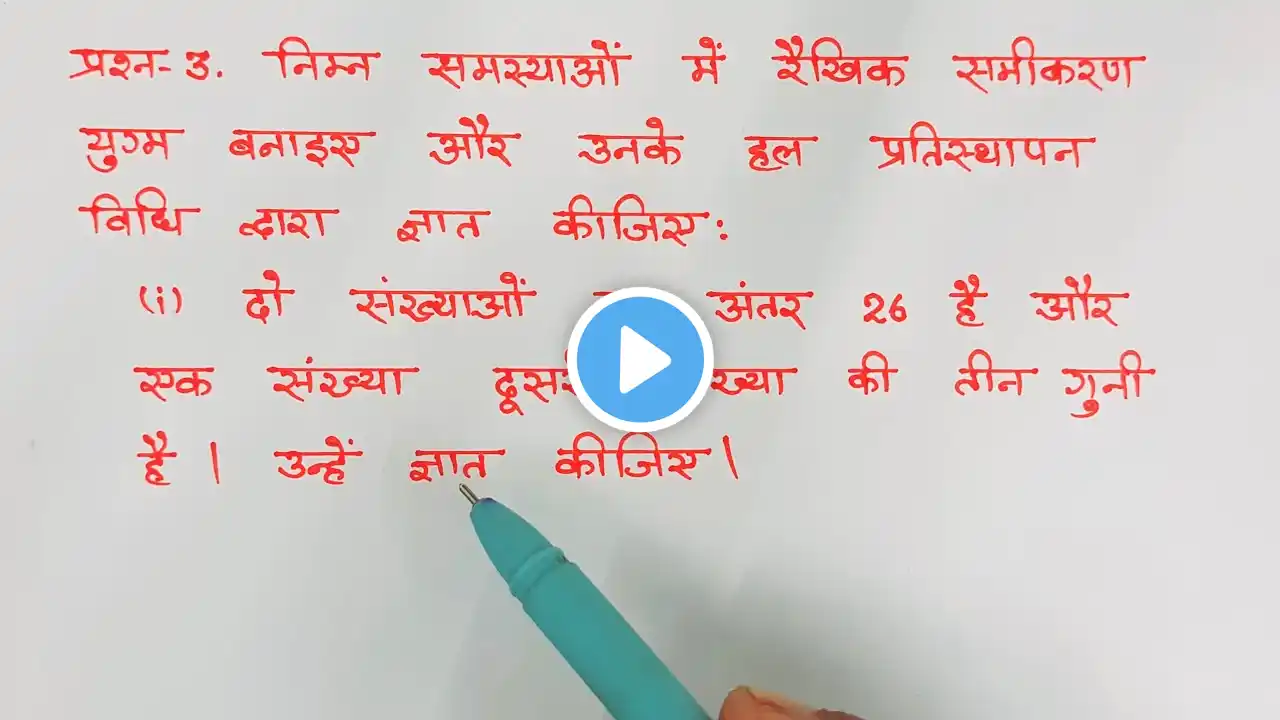 प्रश्न-3. निम्न समस्याओं में रैखिक समीकरण
युग्म बनाइए और उनके हल प्रतिस्थापन
विधि द्वारा ज्ञात कीजिए:
(i) दो संख्याओं अंतर 26 है और
एक संख्या की तीन गुनी
है। उन्हें ज्ञात कीजिए।